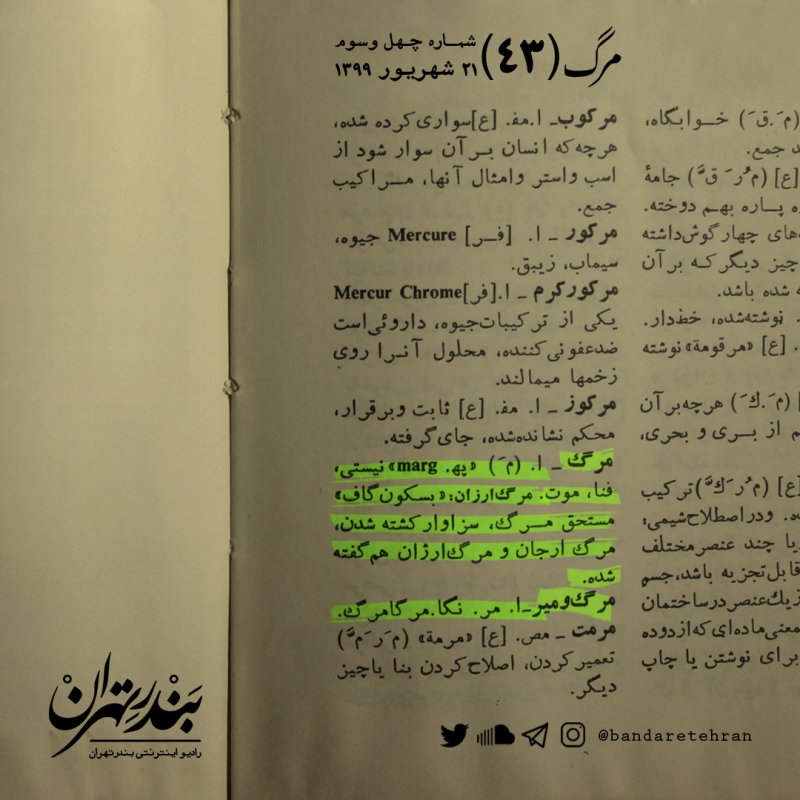 مرگ (٤٣)
شماره چهل وسوم
۲۱ شهریور ۱۳۹۹
(مَ.قَ) خوابگاه،
جمع.
[ع] (مُ رَ قَّ) جامهٔ
پاره پاره بهم دوخته.
های چهار گوش‌داشته
چیز دیگر که بر آن
شده باشد.
نوشته‌شده، خط‌دار.
[ع] «مرقومة» نوشته
(مَ.كَ) هرچه‌بر آن
از بری و بحری،
[ع] (مُ رَ كَّ) ترکیب
ودراصطلاح‌شیمی:
یا چند عنصرمختلف
قابل‌تجزیه باشد، جسم
عنصردرساختمان
معنی‌ماده‌ای‌که‌ازدوده
برای نوشتن یا چاپ
مرکوب ـ ا.مف. [ع]سواری‌کرده شده،
هرچه‌که انسان بر آن سوار شود از
اسب واستر وامثال آنها، مراکیب
جمع.
مرکور ـ ا. [فر] Mercure جیوه،
سیماب، زیبق.
مرکورکرم ـ ا.[فر]Mercur Chrome
یکی از ترکیبات‌جیوه، داروئی‌است
ضدعفونی‌کننده، محلول آنرا روی
زخمها میمالند.
مرکوز ـ ا. مف. [ع] ثابت وبرقرار،
محکم نشانده‌شده، جای‌گرفته.
مرگ ـ ا. (مَ) «په. marg» نیستی،
فنا، موت. مرگ‌ارزان: «بسکون‌گاف»
مستحق مرگ، سزاوار کشته شدن،
مرگ ارجان و مرگ‌ارژان هم‌گفته
شده.
مرگ‌ومیر ـ ا. مر. نگا.مرگامرگ.
مرمت ـ مص. [ع] «مرمة» (مَ رَ مَّ)
تعمیرکردن، اصلاح‌کردن بنا یاچیز
دیگر.
بندر تهران
رادیو اینترنتی بندرتهران
@bandaretehran